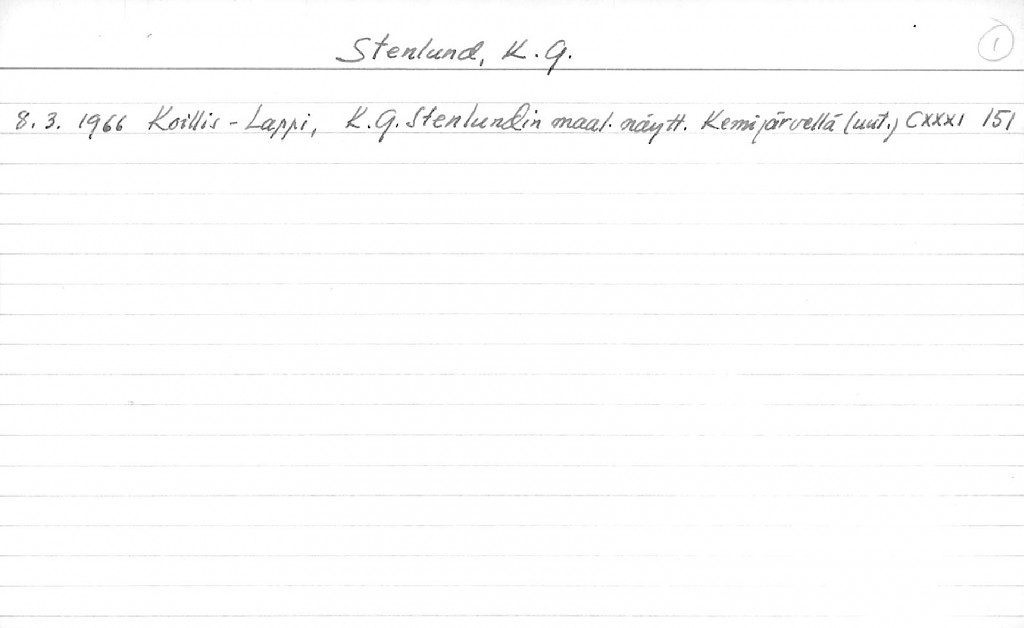 Stenlund, K.G.
1
8.3. 1966 Koillis-Lappi, K.G. Stenlundin maal. näytt. Kemijärvellä (uut.) CXXXI 151